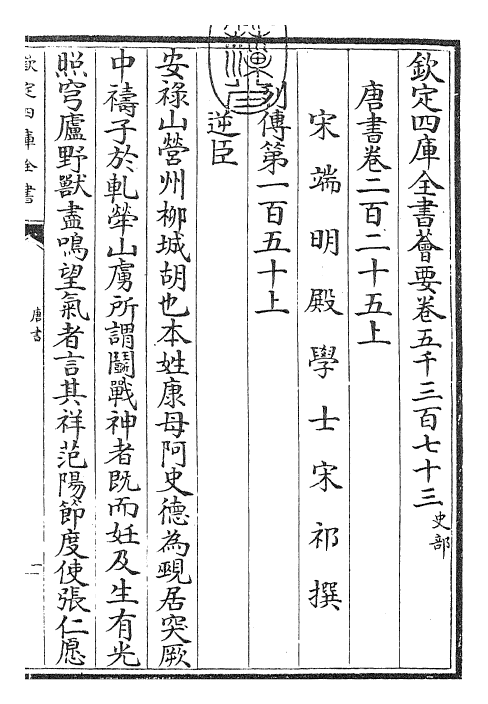 欽定四庫全書薈要卷五千三百七十三 史部
唐書卷二百二十五上
宋端明殿學士宋祁撰
列傳第一百五十上
逆臣
安祿山營州柳城胡也本姓康母阿史德為覡居突厥
中禱子於軋犖山虜所謂鬭戰神者既而妊及生有光
照穹廬野獸盡鳴望氣者言其祥范陽節度使張仁愿
欽定四庫全書
唐書
一